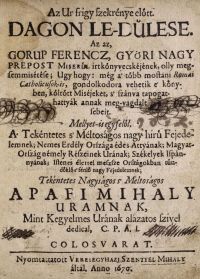 Az Ur frigy szekrénye előtt.
DAGON LE-DÜLESE.
Az az,
GORUP FERENCZ, GYŐRI NAGY
PREPOST Miserik irtkönyvecskéjének, olly meg-
semmisitése; Ugy hogy: még a' több mostani Romai
Catholicusokis, gondolkodora vehetik e' köny-
ben, kétfőrt Miséieket, s' szánva tapogat-
hattyák annak meg-vagdalt
sebeit.
Melyet-isegyesől.
A' Tekéntetes s' Méltóságos nagy hírű Fejede-
lemnek; Nemes Erdély Országa édes Attyának; Magyar-
Ország némely Részeinek Urának; Székelyek Ispán-
nyának: Illenes élettel messzire Országokban
nagy Fejedelemnek,
Tekéntetes Nagyságos s' Méltóságos
APAFI MIHALY
URAMNAK,
Mint Kegyelmes Urának alázatos szivel
dedical, C. P. A. I.
COLOSVARAT.
Nyomtattatott VERESEGYHAZI SZENTYEL MIHALY
által, Anno 1670.